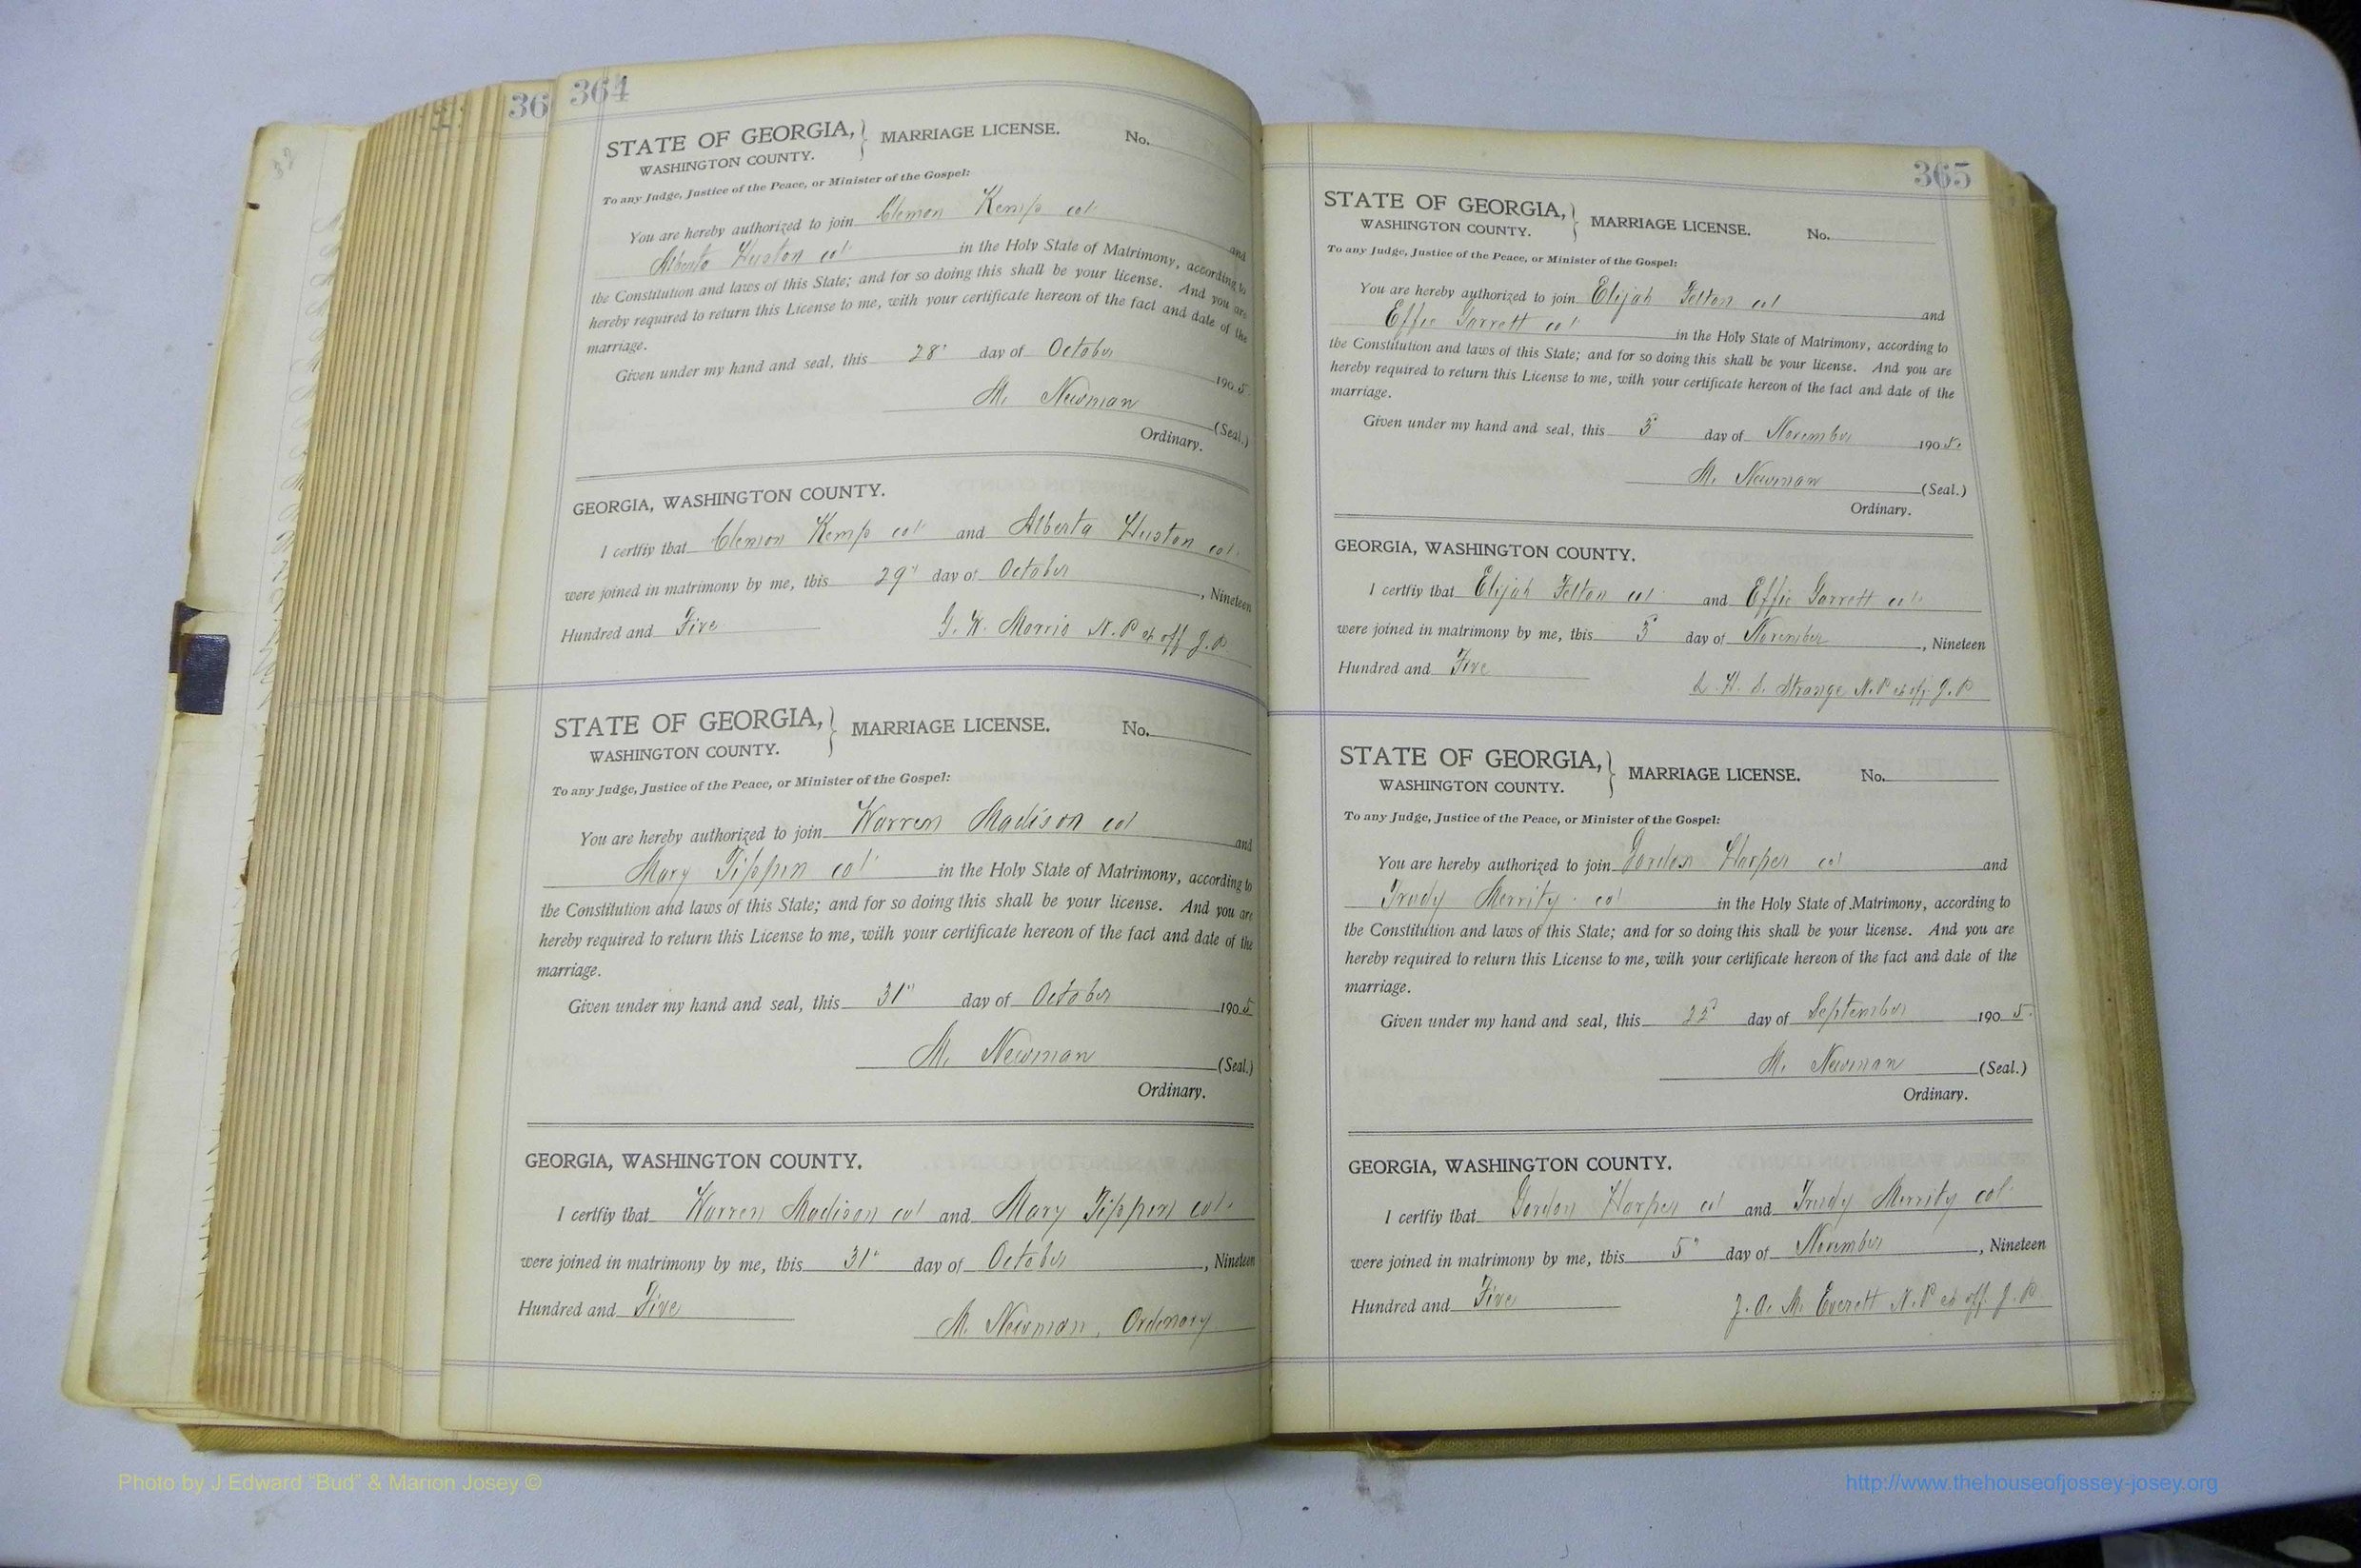 36
364
STATE OF GEORGIA, } MARRIAGE LICENSE. No.
WASHINGTON COUNTY.
To any Judge, Justice of the Peace, or Minister of the Gospel:
You are hereby authorized to join Clemon Kemp col and
Alberta Huston col in the Holy State of Matrimony, according to
the Constitution and laws of this State; and for so doing this shall be your license. And you are
hereby required to return this License to me, with your certificate hereon of the fact and date of the
marriage.
Given under my hand and seal, this 28" day of October 1905
M. Newman (Seal.)
Ordinary.
GEORGIA, WASHINGTON COUNTY.
I certfiy that Clemon Kemp col and Alberta Huston col.
were joined in matrimony by me, this 29" day of October, Nineteen
Hundred and Five
G. W. Morris N. P ex off J. P.
STATE OF GEORGIA, } MARRIAGE LICENSE. No.
WASHINGTON COUNTY.
To any Judge, Justice of the Peace, or Minister of the Gospel:
You are hereby authorized to join Warren Madison col and
Mary Tippen col in the Holy State of Matrimony, according to
the Constitution and laws of this State; and for so doing this shall be your license. And you are
hereby required to return this License to me, with your certificate hereon of the fact and date of the
marriage.
Given under my hand and seal, this 31" day of October 1905
M. Newman (Seal.)
Ordinary.
GEORGIA, WASHINGTON COUNTY.
I certfiy that Warren Madison col and Mary Tippen col.
were joined in matrimony by me, this 31" day of October, Nineteen
Hundred and Five
M. Newman, Ordinary
365
STATE OF GEORGIA, } MARRIAGE LICENSE. No.
WASHINGTON COUNTY.
To any Judge, Justice of the Peace, or Minister of the Gospel:
You are hereby authorized to join Elijah Felton col and
Effie Garrett col in the Holy State of Matrimony, according to
the Constitution and laws of this State; and for so doing this shall be your license. And you are
hereby required to return this License to me, with your certificate hereon of the fact and date of the
marriage.
Given under my hand and seal, this day of November 1905.
M. Newman (Seal.)
Ordinary.
GEORGIA, WASHINGTON COUNTY.
I certfiy that Elijah Felton col and Effie Garrett col.
were joined in matrimony by me, this day of November, Nineteen
Hundred and Five
H. S. Strange N. P ex off J. P
STATE OF GEORGIA, } MARRIAGE LICENSE. No.
WASHINGTON COUNTY.
To any Judge, Justice of the Peace, or Minister of the Gospel:
You are hereby authorized to join Gordon Harper col and
Trudy Merrity col in the Holy State of Matrimony, according to
the Constitution and laws of this State; and for so doing this shall be your license. And you are
hereby required to return this License to me, with your certificate hereon of the fact and date of the
marriage.
Given under my hand and seal, this day of September 1905.
M. Newman (Seal.)
Ordinary.
GEORGIA, WASHINGTON COUNTY.
I certfiy that Gordon Harper col and Trudy Merrity col.
were joined in matrimony by me, this 5" day of November, Nineteen
Hundred and Five
J. A. M. Everett N. P ex off. J. P.
Photo by J Edward “Bud” & Marion Josey ©
http://www.thehouseofjossey-josey.org